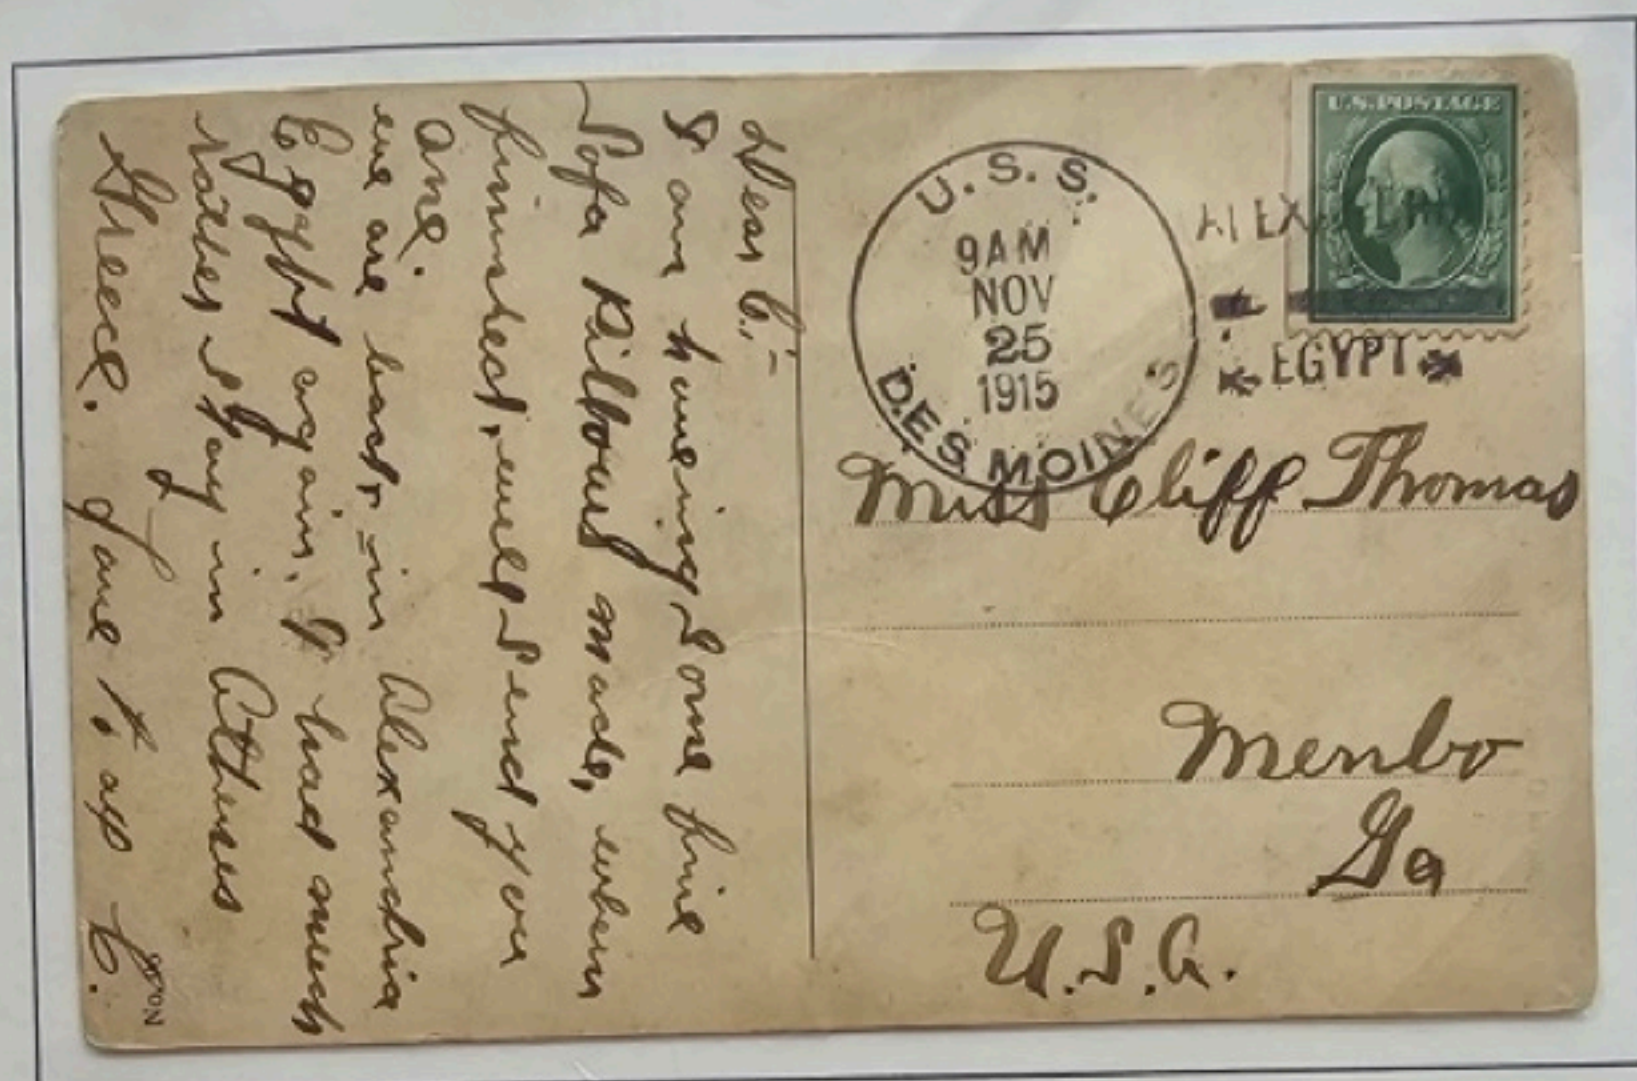 Dear C:-
I am haveing some fine
Sofa Pillows made, when
finished, will send you
one.
we are back, in Alexandria
Egypt again. I had much
rather stay in Athenes
Greece. Love to all C.
No.
U.S.S.
9AM
NOV
25
1915
DES MOINES
U.S. POSTAGE
EGYPT
Miss Cliff Thomas
Menlo
Ga
U.S.A.